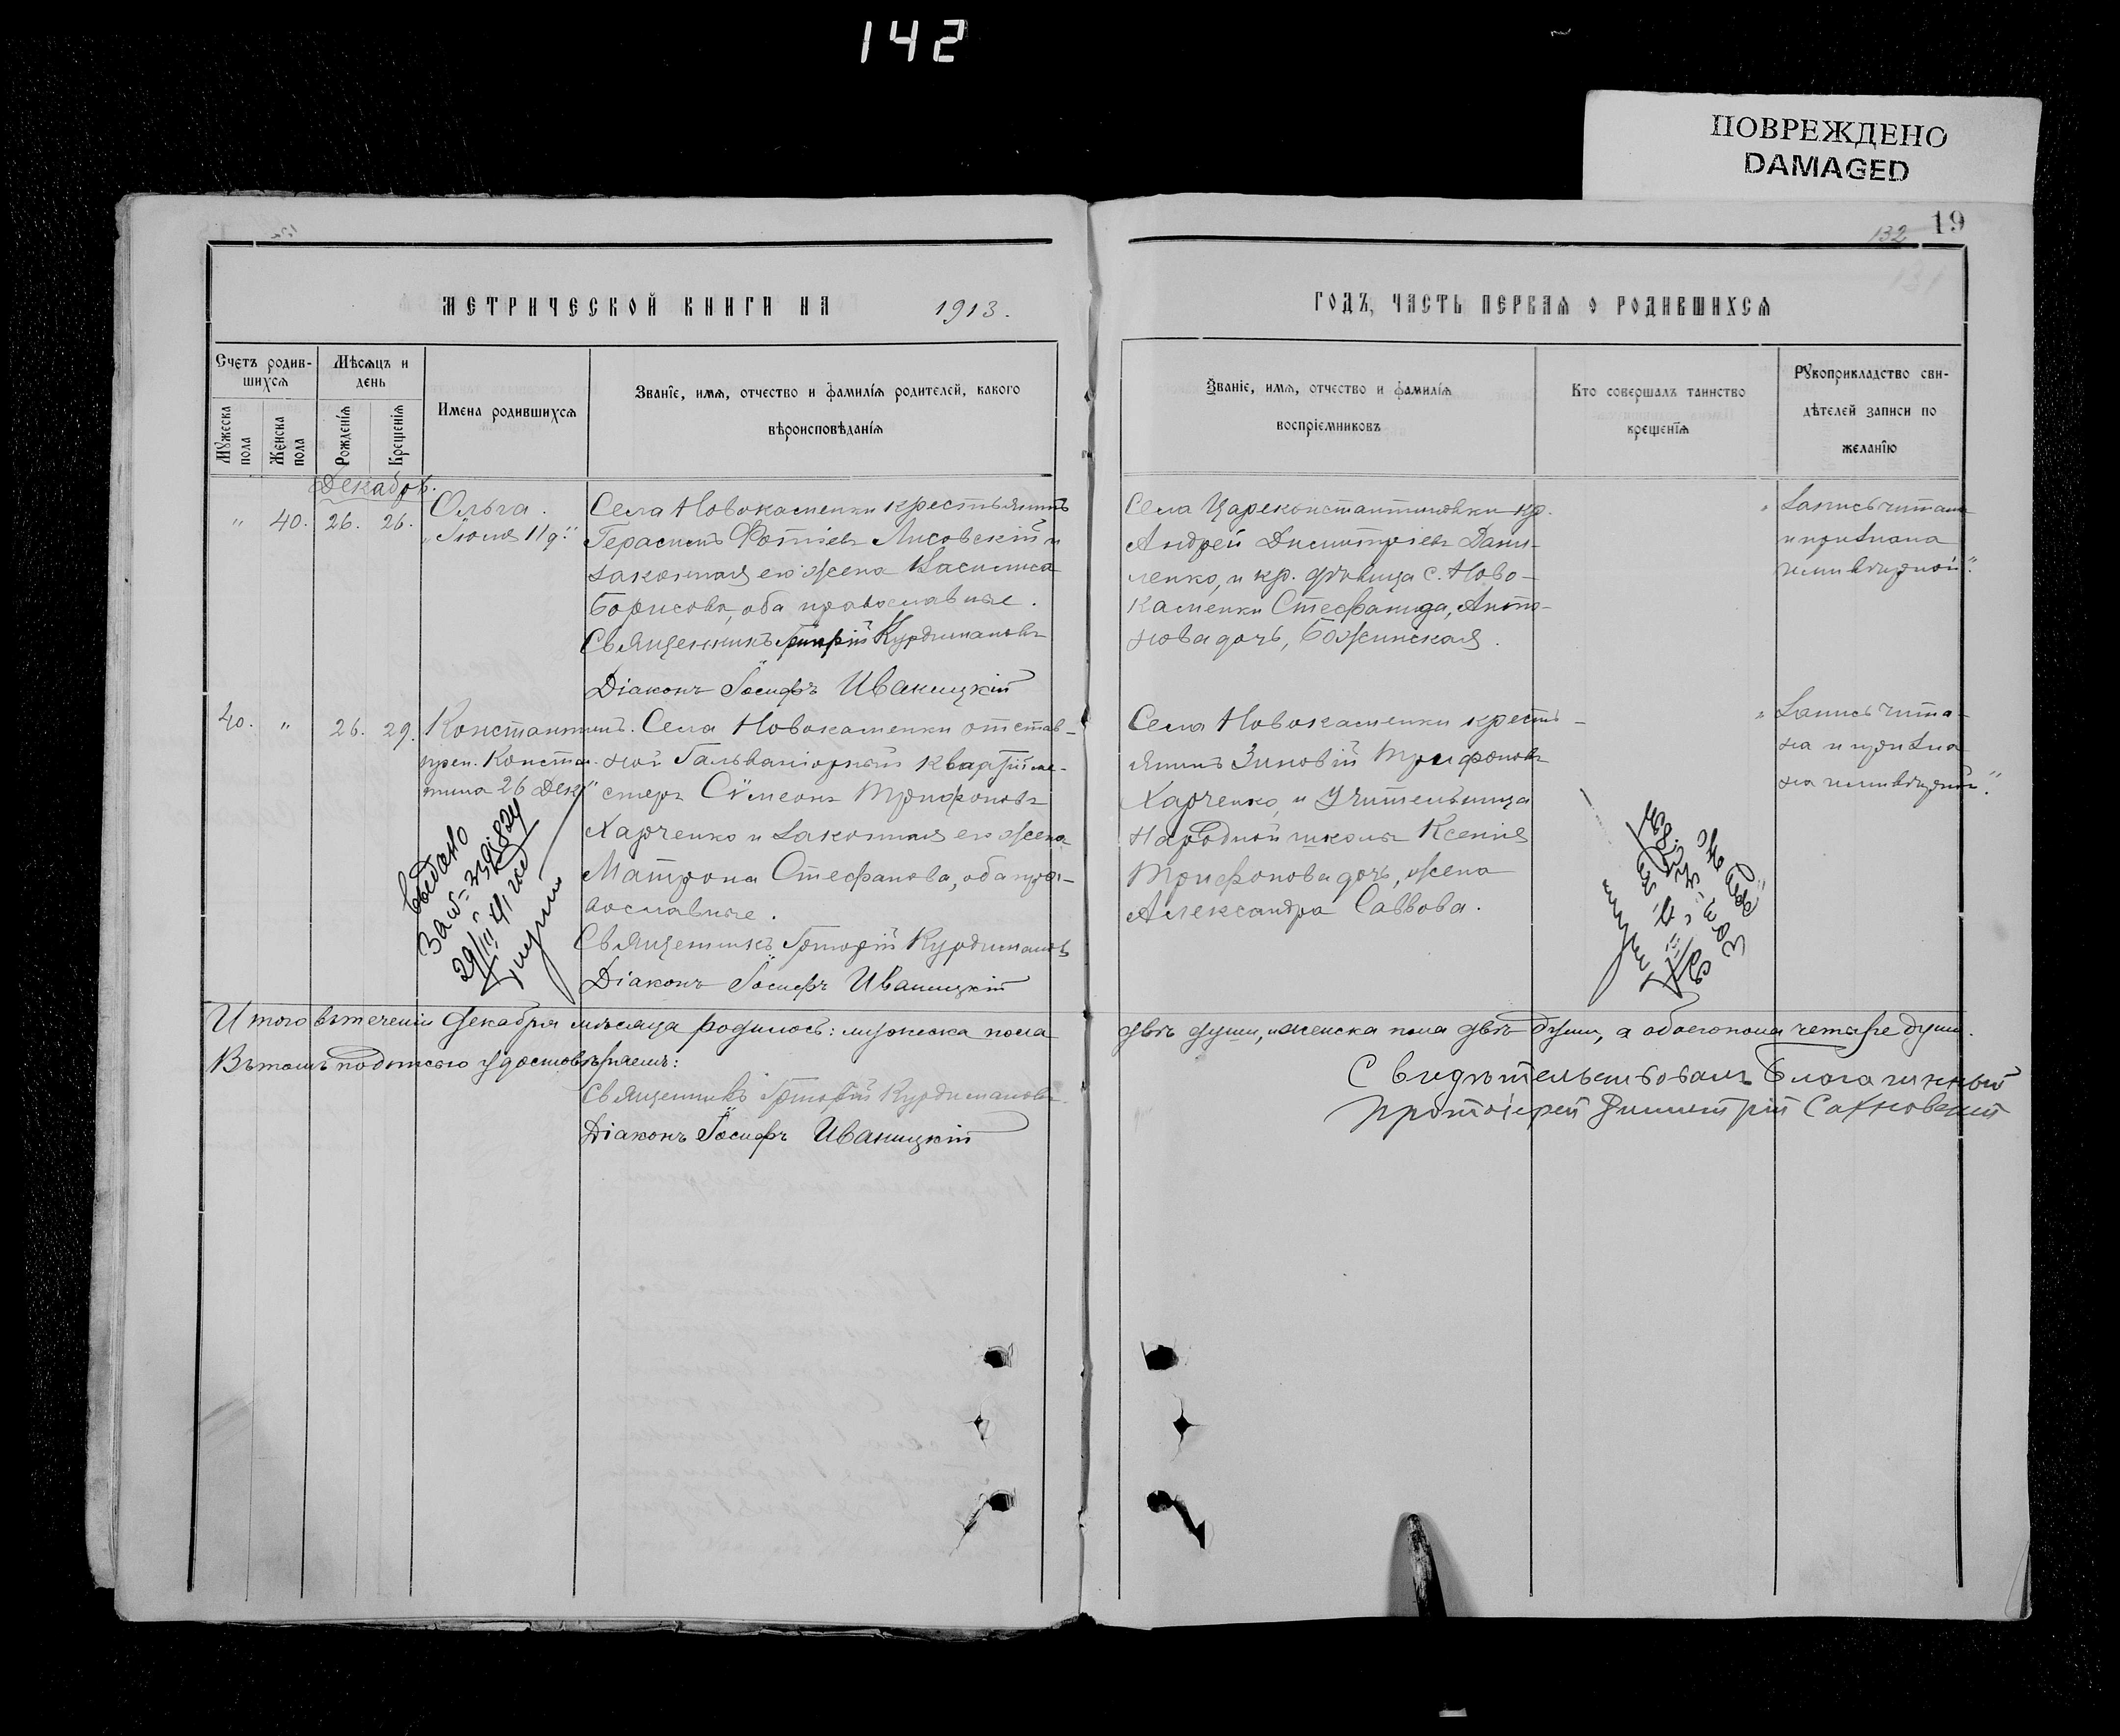 142
ПОВРЕЖДЕНО
DAMAGED
132 19
131
МЕТРИЧЕСКОЙ КНИГИ НА 1913.
Счетъ родив-
шихся
Мѣсяцъ и
день
Мужеска
пола
Женска
пола
Рожденія
Крещенія
Имена родившихся
Званіе, имя, отчество и фамилія родителей, какого
вѣроисповѣданія
Декабрь.
" 40. 26. 26.
Ольга.
"Іюля 11 д."
Села Новокаменки крестьянинъ
Герасимъ Фотіевъ Лисовскій и
законная его жена Василиса
Борисова, оба православные.
Священникъ Григорій Курдимановъ
Діаконъ Іосифъ Иваницкій
40. " 26. 29.
Константинъ.
преп. Констан-
тина 26 Дек."
Села Новокаменки отстав-
ной Гальванiорный квартирме-
стеръ Сѵмеонъ Трифоновъ
Харченко и законная его жена
Матрона Стефанова, оба пра-
вославные.
Священникъ Григорій Курдимановъ
Діаконъ Іосифъ Иваницкій
Выдано
29/III 41 год
Итого въ теченіи Декабря мѣсяца родилось: мужеска пола
Въ томъ подписью удостовѣряемъ:
Священникъ Григорій Курдимановъ
Діаконъ Іосифъ Иваницкій
ГОДЪ, ЧАСТЬ ПЕРВАЯ О РОДИВШИХСЯ
Званіе, имя, отчество и фамилія
воспріемниковъ
Кто совершалъ таинство
крещенія
Рукоприкладство сви-
дѣтелей записи по
желанію
Села Цареконстантиновки кр.
Андрей Димитріевъ Дани-
ленко, и кр. дѣвица с. Ново-
каменки Стефанида, Анто-
нова дочь, Божинская.
"Запись читана
и признана
Села Новокаменки кресть-
янинъ Зиновій Трифоновъ
Харченко, и учительница
народной школы Ксенія
Трифонова дочь, жена
Александра Саввова.
"Запись чита-
на и призна-
на
двѣ души, женска пола двѣ души, а обоего пола четыре души.
Свидѣтельствовалъ Благочинный
Протоіерей Димитрій Сахновскій